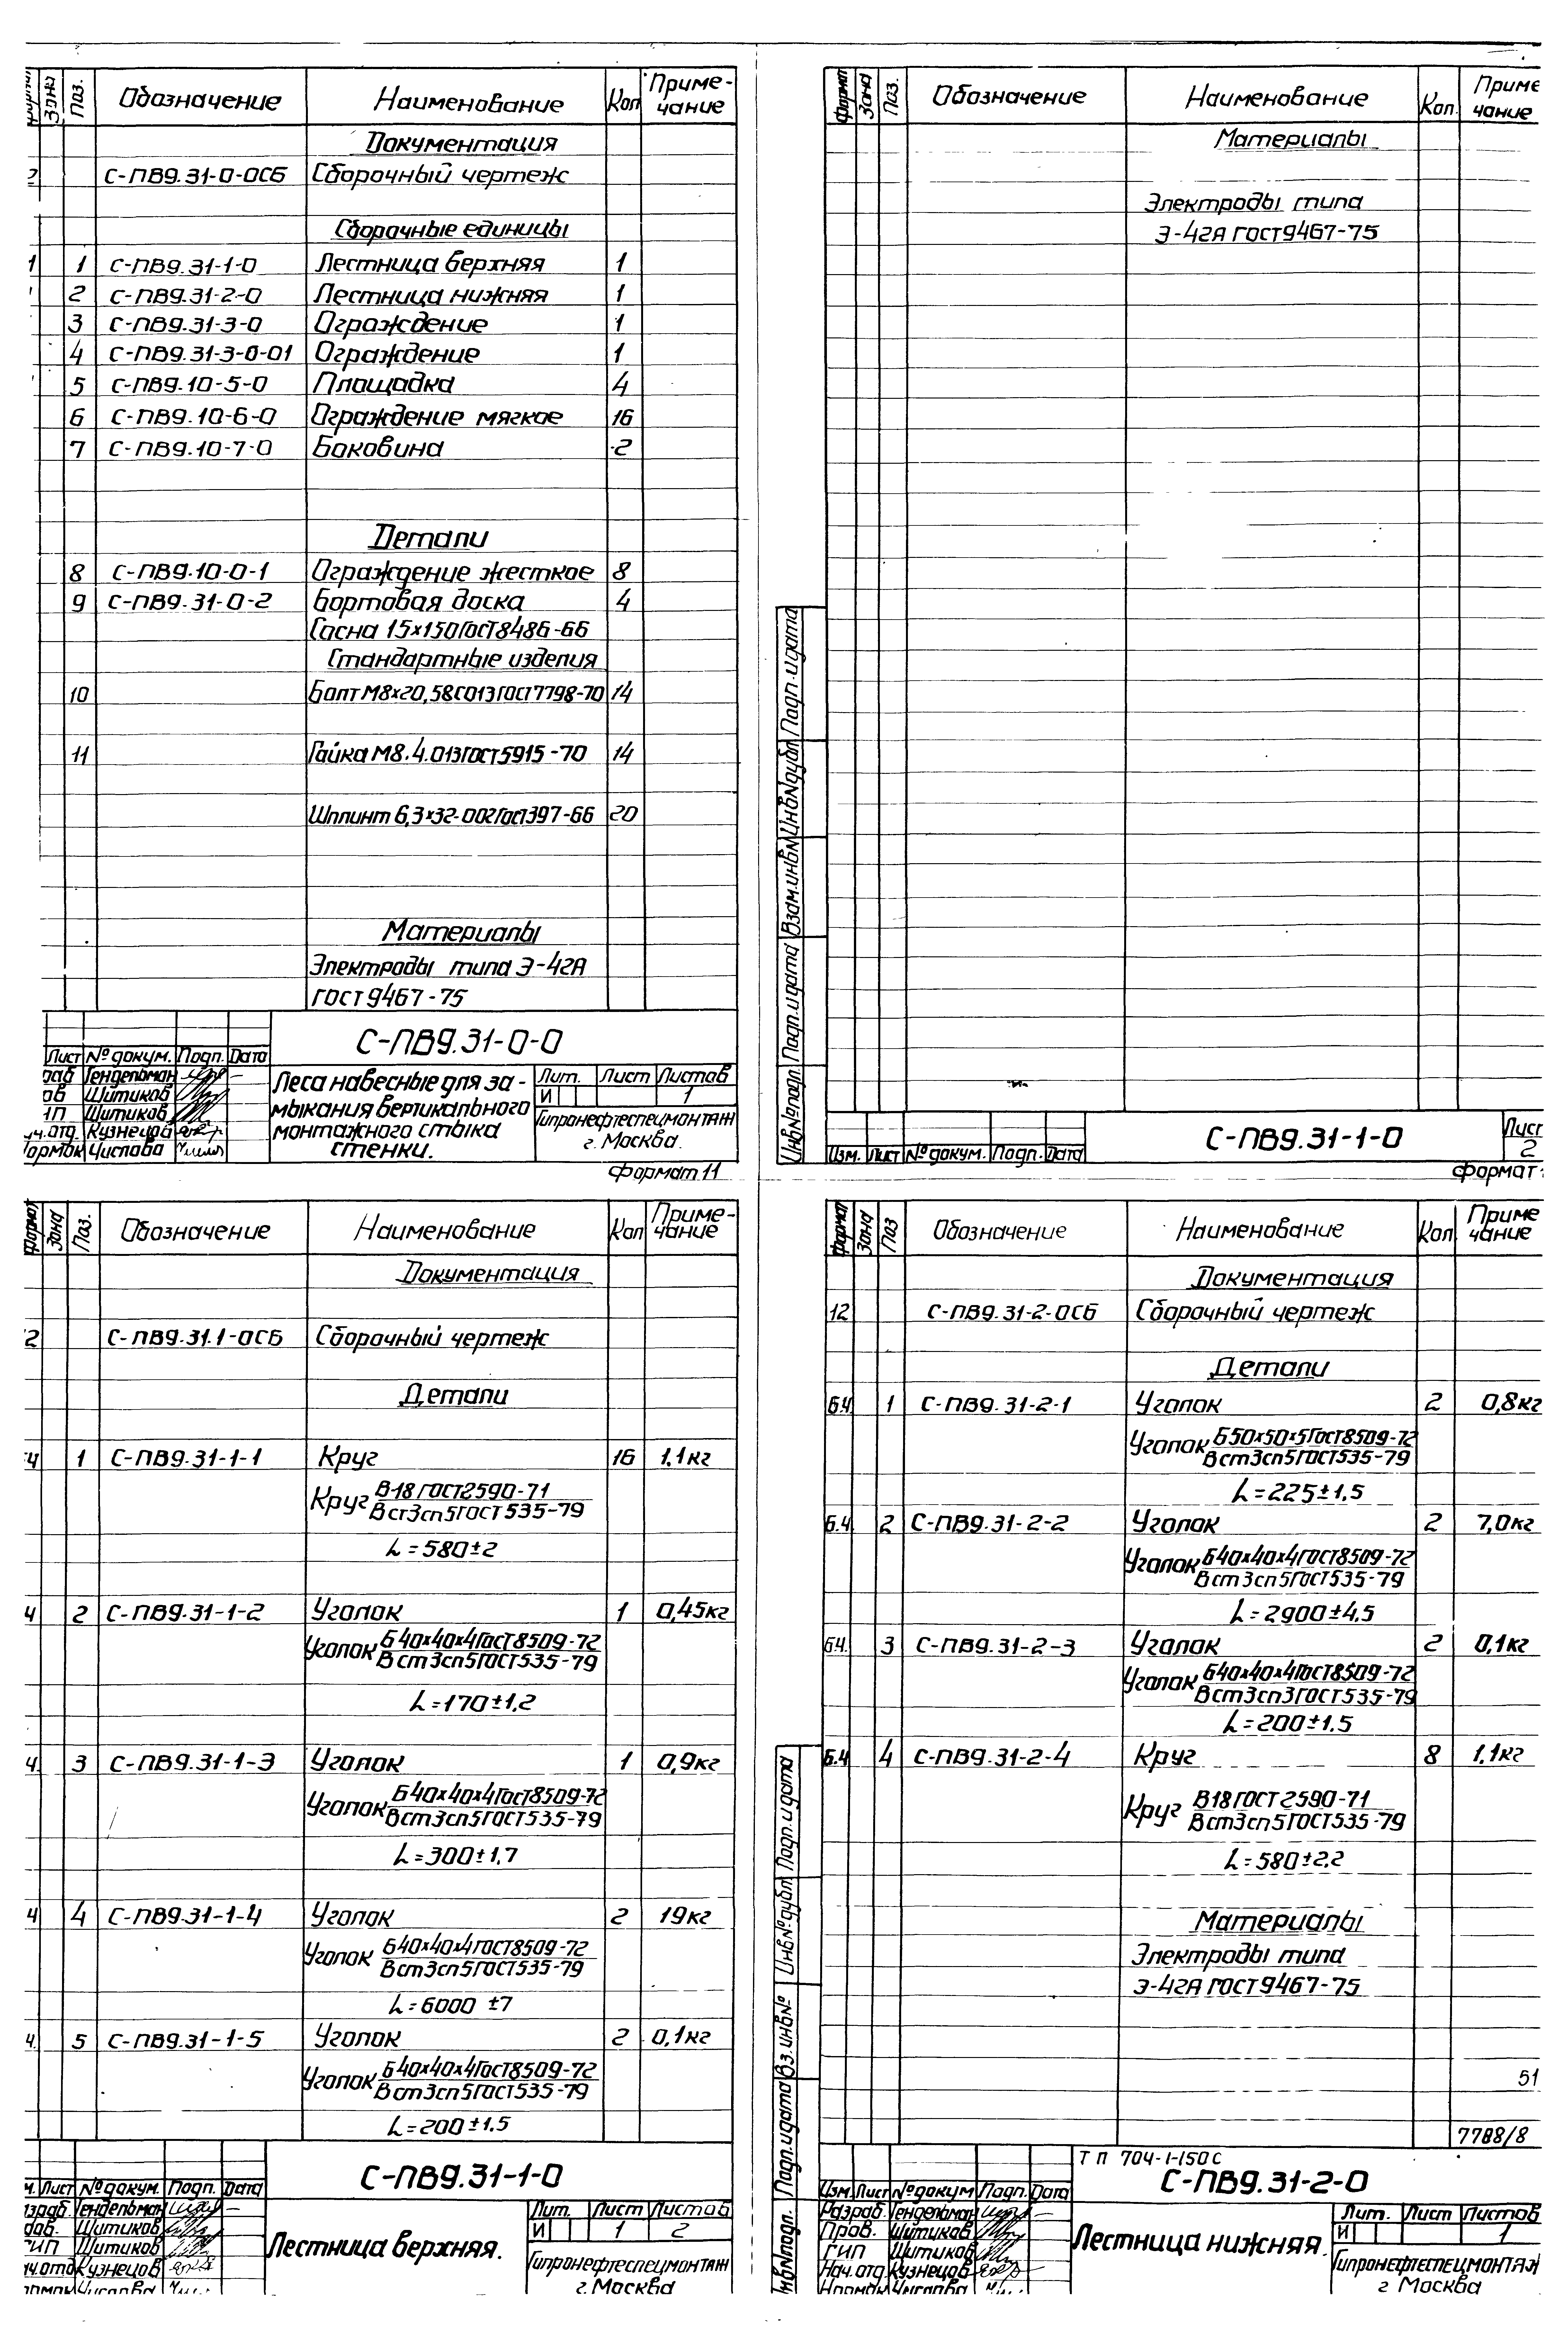 Зона Поз. Обозначение Наименование Кол Приме-
чание
Документация
С-ПВ9.31-0-0СБ Сборочный чертеж
Сборочные единицы
1 С-ПВ9.31-1-0 Лестница верхняя 1
2 С-ПВ9.31-2-0 Лестница нижняя 1
3 С-ПВ9.31-3-0 Ограждение 1
4 С-ПВ9.31-3-0-01 Ограждение 1
5 С-ПВ9.10-5-0 Площадка 4
6 С-ПВ9.10-6-0 Ограждение мягкое 16
7 С-ПВ9.10-7-0 Боковина 2
Детали
8 С-ПВ9.10-0-1 Ограждение жесткое 8
9 С-ПВ9.31-0-2 Бортовая доска 4
Сосна 15×150 ГОСТ 8486-66
Стандартные изделия
10 Болт М8×20,58С013 ГОСТ 7798-70 14
11 Гайка М8.4.013 ГОСТ 5915-70 14
Шплинт 6,3×32-002 ГОСТ 397-66 20
Материалы
Электроды типа Э-42А
ГОСТ 9467-75
С-ПВ9.31-0-0
Лист № докум. Подп. Дата
Гендельман
Шитиков
Шитиков
Кузнецов
Числова
Леса навесные для за-
мыкания вертикального
монтажного стыка
стенки.
Лит. Лист Листов
И 1
Гипронефтеспецмонтаж
г. Москва.
Формат 11
Формат Зона Поз. Обозначение Наименование Кол. Приме
чание
Материалы
Электроды типа
Э-42А ГОСТ 9467-75
Инв№подл. Подп. и дата Взам.инв№ Инв№дубл Подп. и дата
Изм. Лист № докум. Подп. Дата
С-ПВ9.31-1-0
Лист
2
Формат
Формат Зона Поз. Обозначение Наименование Кол Приме-
чание
Документация
С-ПВ9.31.1-0СБ Сборочный чертеж
Детали
1 С-ПВ9.31-1-1 Круг 16 1,1кг
Круг В18 ГОСТ 2590-71
Вст3сп5 ГОСТ 535-79
L=580±2
2 С-ПВ9.31-1-2 Уголок 1 0,45кг
Уголок Б40×40×4 ГОСТ 8509-72
Вст3сп5 ГОСТ 535-79
L=170±1,2
3 С-ПВ9.31-1-3 Уголок 1 0,9кг
Уголок Б40×40×4 ГОСТ 8509-72
Вст3сп5 ГОСТ 535-79
L=300±1,7
4 С-ПВ9.31-1-4 Уголок 2 19кг
Уголок Б40×40×4 ГОСТ 8509-72
Вст3сп5 ГОСТ 535-79
L=6000 ±7
5 С-ПВ9.31-1-5 Уголок 2 0,1кг
Уголок Б40×40×4 ГОСТ 8509-72
Вст3сп5 ГОСТ 535-79
L=200±1.5
С-ПВ9.31-1-0
Лист № докум. Подп. Дата
Гендельман
Шитиков
Шитиков
Кузнецов
Числова
Лестница верхняя.
Лит. Лист Листов
И 1 2
Гипронефтеспецмонтаж
г. Москва
Формат Зона Поз Обозначение Наименование Кол. Приме
чание
Документация
12 С-ПВ9.31-2-0СБ Сборочный чертеж
Детали
Б.Ч. 1 С-ПВ9.31-2-1 Уголок 2 0,8кг
Уголок Б50×50×5 ГОСТ 8509-72
Вст3сп5 ГОСТ 535-79
L=225±1,5
Б.Ч. 2 С-ПВ9.31-2-2 Уголок 2 7,0кг
Уголок Б40×40×4 ГОСТ 8509-72
Вст3сп5 ГОСТ 535-79
L=2900±4,5
Б.Ч. 3 С-ПВ9.31-2-3 Уголок 2 0,1кг
Уголок Б40×40×4 ГОСТ 8509-72
Вст3сп3 ГОСТ 535-79
L=200±1.5
Б.Ч 4 С-ПВ9.31-2-4 Круг 8 1.1кг
Круг В18 ГОСТ 2590-71
Вст3сп5 ГОСТ 535-79
L=580±2,2
Материалы
Электроды типа
Э-42А ГОСТ 9467-75
51
7788/8
Подп. и дата Вз.инв№ Инв№дубл Подп. и дата
ТП 704-1-150С
С-ПВ9.31-2-0
Изм. Лист № докум Подп. Дата
Разраб. Гендельман
Пров. Шитиков
ГИП Шитиков
Нач.отд. Кузнецов
Нормок Числова
Лестница нижняя.
Лит. Лист Листов
И 1
Гипронефтеспецмонтаж
г Москва